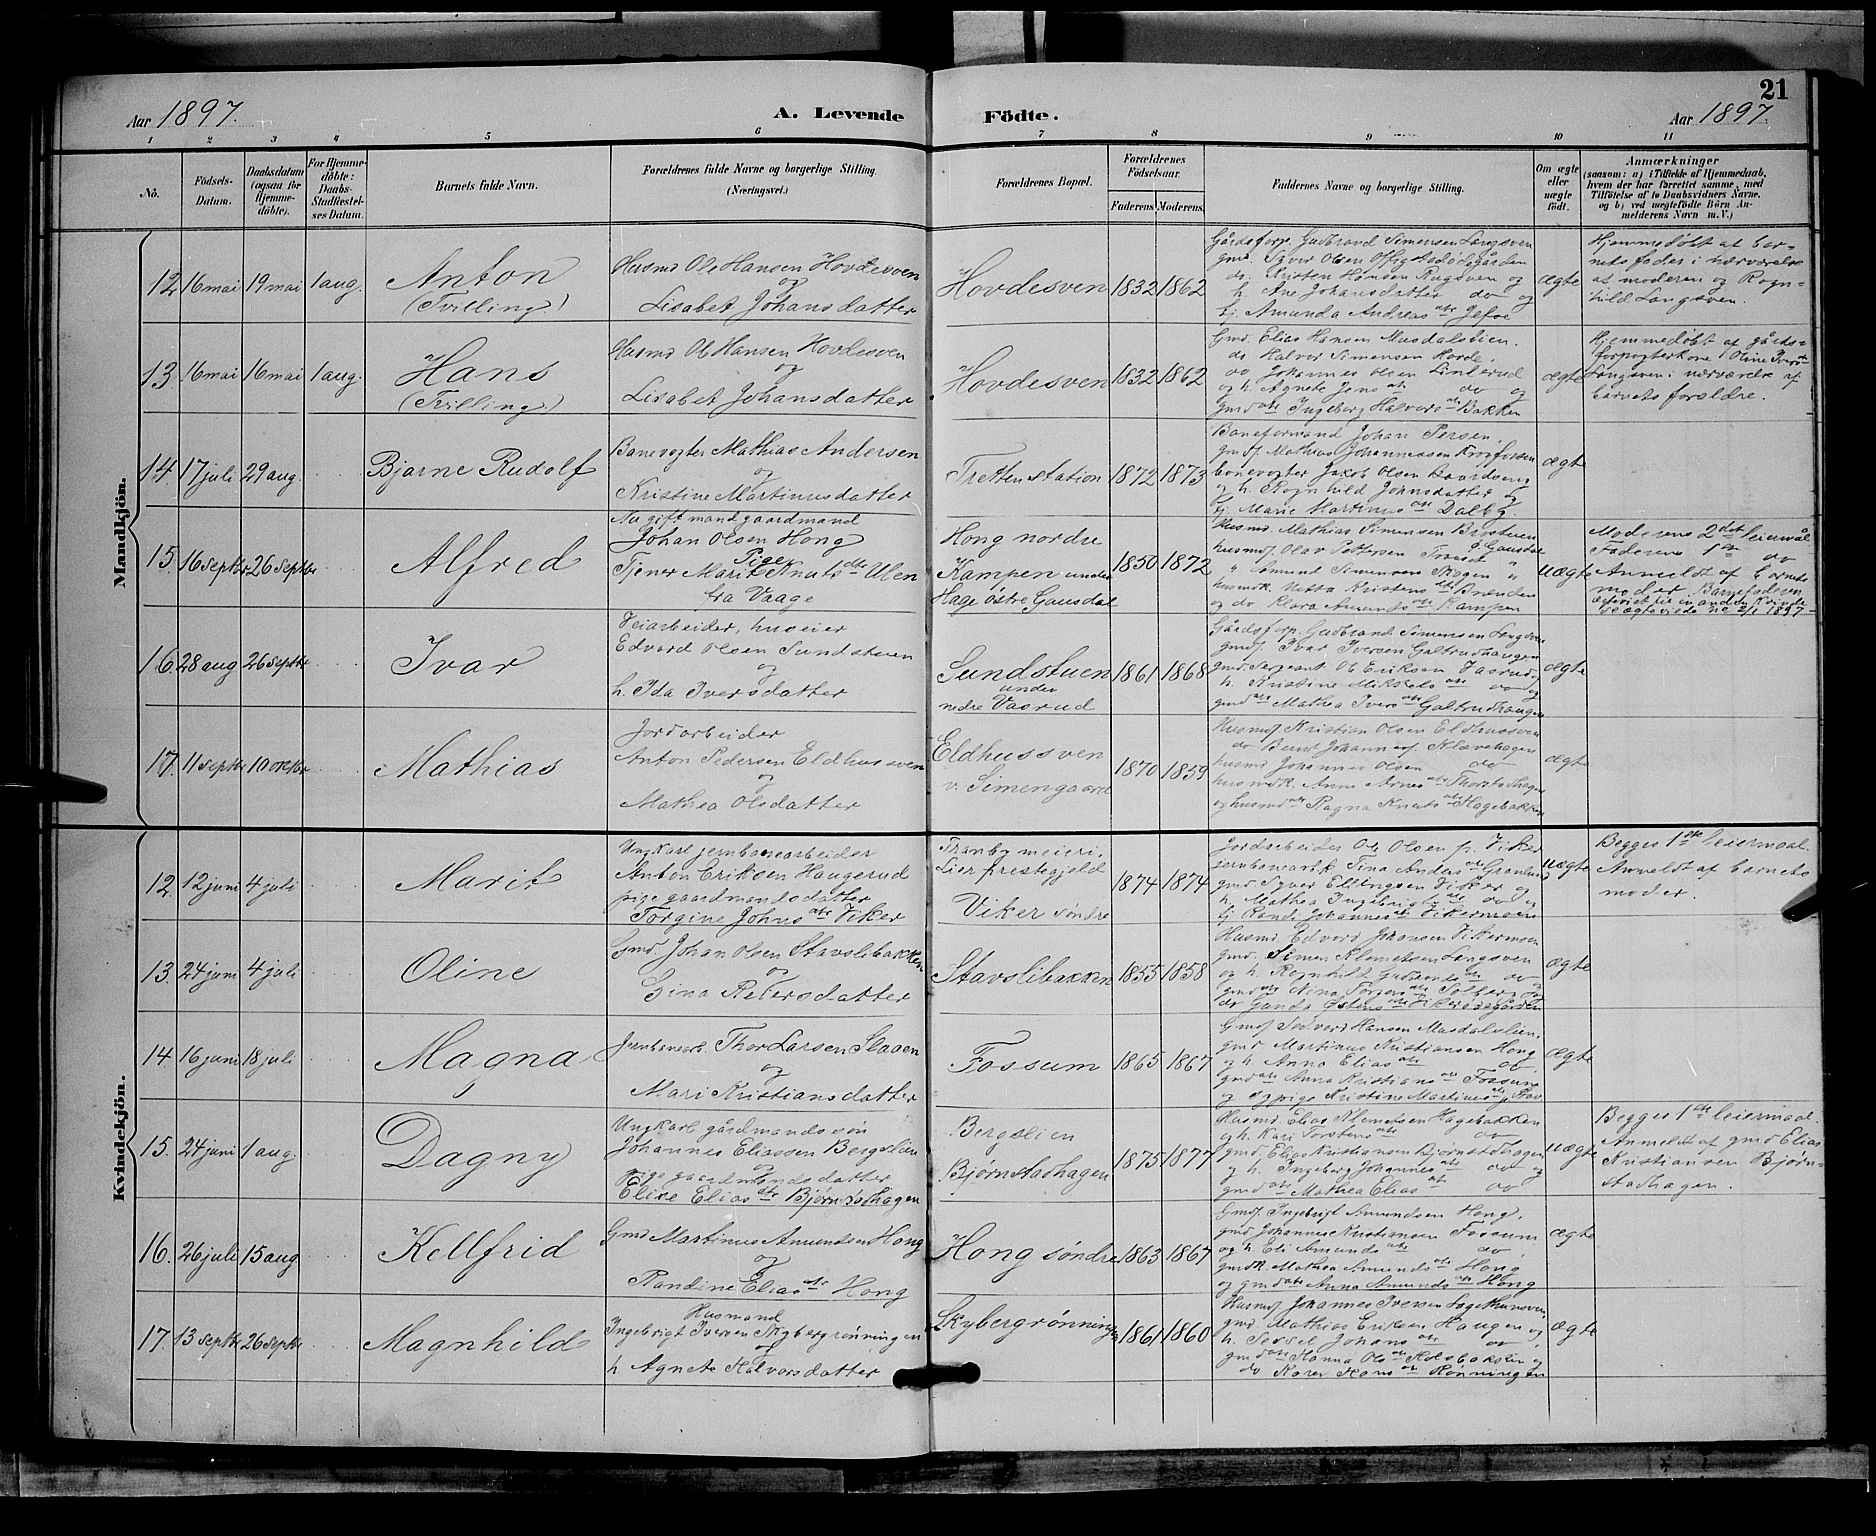 21
Aar 1897.
A. Levende
Födte.
Aar 1897.
1 2 3 4 5 6 7 8 9 10 11
No.
Födsels-
Datum.
Daabsdatum
(ogsaa for
Hjemme-
döbte).
For Hjemme-
döbte:
Daabs-
Stadfæstel-
ses Datum.
Barnets fulde Navn.
Forældrenes fulde Navne og borgerlige Stilling
(Næringsvei.)
Forældrenes Bopæl.
Forældrenes
Födselsaar.
Faderens. Moderens.
Faddernes Navne og borgerlige Stilling.
Om ægte
eller
uægte
födt.
Anmærkninger
(saasom: a) i Tilfælde af Hjemmedaab,
hvem der har forrettet samme, med
Tilföielse af to Daabsvidners Navne,
og b) ved uægtefödte Börn An-
melderens Navn m. V.)
Mandkjön.
12 16 mai 19 mai 1 aug.
Anton
(Tvilling)
Husmd Ole Hansen Hovdesven
og
Lisabet Johansdatter
Hovdesven 1832 1862
Gårdsforp. Gudbrand Simensen Langsven
ds. Kristen Hansen Rugsven og
h. Ane Johansdatter do og
ægte
Hjemmedöbt af bar-
nets fader i nærværelse
af moderen og Rogn-
hild Langsven.
13 16 mai 16 mai 1 aug.
Hans
(Tvilling)
Husmd Ole Hansen Hovdesven
og
Lisabet Johansdatter
Hovdesven 1832 1862
Gmd. Elias Hansen Musdalslien.
ds Halvor Simensen Horde.
do Johannes Olsen Linkerud
og h. Agnete Jens dtr do og
gmd dtr Ingeborg Halvors dtr Bakken
ægte
Hjemmedöbt af gårds-
forpagterkone Oline Ivers dtr
Langsven i nærværelse af
barnets forældre.
14 17 juli 29 aug.
Bjarne Rudolf
Banevogter Mathias Andersen
og
Kristine Martinusdatter
Tretten station 1872 1873
Baneformand Johan Persen,
banevogter Jakob Olsen
og h. Rognhild Johnsdatter og
tj. Marie Martinus dtr Dalby.
ægte
15. 16 septbr 26 septbr
Alfred
Nu gift mand gaardmand
Johan Olsen Hong
Pige
Tjener Marit Knuts dtr Ulen
fra Vaage
Hong nordre
Kampen under
Hage østre Gausdal
1850 1872
Husmd Mathias Simensen
husmd. Olav Pettersen
" Amund Simensen "
og do Klara Amunds dtr Kampen
uægte
Moderens 2det leiermål
Faderens 1ste do
Anmeldt af barnets
moder. Barnefaderen
ægteviet til en anden kvinde
16. 28 aug 26 septbr
Ivar
Veiarbeider, huseier
Edvard Olsen Sundstuen
og
h. Ida Iversdatter
Sundstuen
under
nedre Vasrud
1861 1868
Gårdsforp. Gudbrand Simensen Langsven
gmd. Ivar Iversen Galtrudhaugen
gmd Sergeant Ole Eriksen
h. Kristine Mikkels dtr do og
gmd dtr Mathea Ivers dtr Galtrudhaugen
ægte
17. 11 septbr 10 oktbr
Mathias
Jordarbeider
Anton Pedersen Eldhussven
og
Mathea Olsdatter
Eldhussven
v. Simengaard
1870 1859
Husmd. Kristian Olsen Eldhussven
do Bernt Johannes. Klævehagen
husmd Johannes Olsen do
husmdk. Anne Arnes dtr
og husmd dtr Ragna Knuts dtr Hagebakken
ægte
Kvindekjön.
12. 12 juni 4 juli
Marit
Ungkarl jernbanearbeider
Anton Eriksen Haugerud
pige gaardmandsdatter
Torgine Johns dtr Viker
Tranby meieri,
Lier prestegjeld
Viker søndre
1874 1874
Jordarbeider Ole Olsen p. Viker
jernbanearb.k. Tina Anders dtr Granlund
gmd Syver Ellingsen Viker og
h. Mathea Ingebrigts dtr do og
tj. Randi Johannes dtr Vikermoen
uægte
Begges 1ste leiermaal
Anmeldt af barnets
moder.
13. 24 juni 4 juli
Oline
Gmd. Johan Olsen Stavslibakken
og
Gina Petersdatter
Stavslibakken 1855 1858
Husmd Edvard Johansen Vikermoen
gmd. Simen Klemetsen Langsven
og h. Rognhild Gudbrands dtr do
ægte
14. 16 juni 18 juli
Magna
Jernbanearb. Thor Larsen Slaaen
og
Mari Kristiansdatter
Fossum 1865 1867
Gmd. Edvard Hansen Musdalslien,
gmd Martinus Kristiansen Hong
og h. Anna Elias dtr do.
gmd dtr Anna Kristians dtr Fossum
ægte
15. 24 juni 1 aug.
Dagny
Ungkarl gårdmandssøn
Johannes Eliassen Bergslien
og
Pige gaardmandsdatter
Elise Elias dtr Bjørnstadhagen
Bergslien
Bjørnstadhagen
1875 1877
Husmd. Elias Klemetsen Hagebakken
og h. Kari Torstens dtr do
gmd. Elias Kristiansen Bjørnstadhagen
og h. Ingeborg Johannes dtr do og
gmd dtr Mathea Elias dtr do
uægte
Begges 1ste leiermaal.
Anmeldt af gmd Elias
Kristiansen Bjørn-
stadhagen.
16. 26 juli 15 aug.
Kellfrid
Gmd Martinus Amundsen Hong
og
Randine Elias dtr Hong
Hong søndre 1863 1867
Gmd. Ingebrigt Amundsen Hong,
gmd. Johannes Kristiansen Fossum
og h. Eli Amunds dtr do,
gmdk. Mathea Amunds dtr Hong
og gmd dtr Anna Amunds dtr Hong
ægte
17. 13 septbr 26 septbr
Magnhild
Husmand
Ingebrigt Iversen Skybergrønningen
og
h. Agnete Halvorsdatter
Skybergrønningen 1861 1860
Husmd. Johannes Iversen
gmd. Mathias Eriksen Haugen og
h. Sessel Johans dtr do,
gmd dtr Hanna Ols dtr og
do Karen Hans dtr Rønningen
ægte